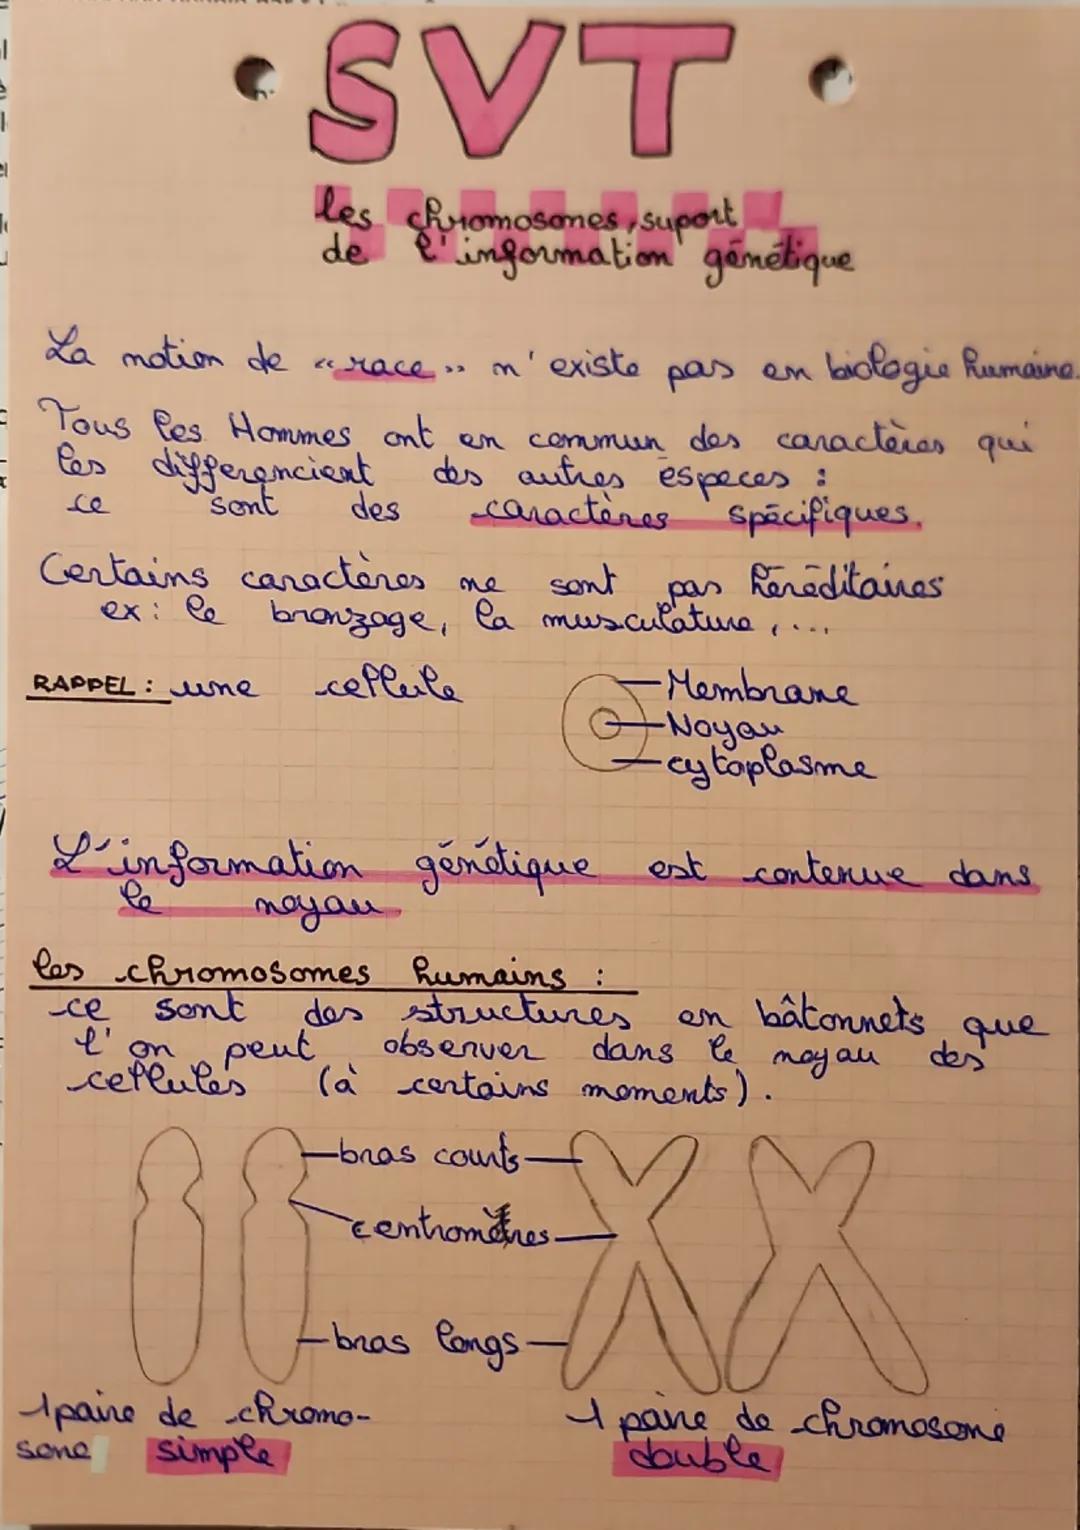 SVT
les chromosones, suport
de l'information génétique
La notion de "race" n'existe pas en biologie humaine.
Tous les Hommes ont en commun des caractères qui
les differencient des autres éspeces :
ce sont des caractères spécifiques.
Certains caractères ne sont pas héréditaires
ex : le bronzage, la musculature, ...
RAPPEL : une cellule
Membrane
Noyau
cytoplasme
L'information génétique est contenue dans
le noyau
les chromosomes humains :
ce sont des structures en bâtonnets que
l'on peut observer dans le noyau des
cellules (à certains moments).
bras courts
centromètres
bras longs
1 paire de chromo-
sone simple
1 paire de chromosone
double